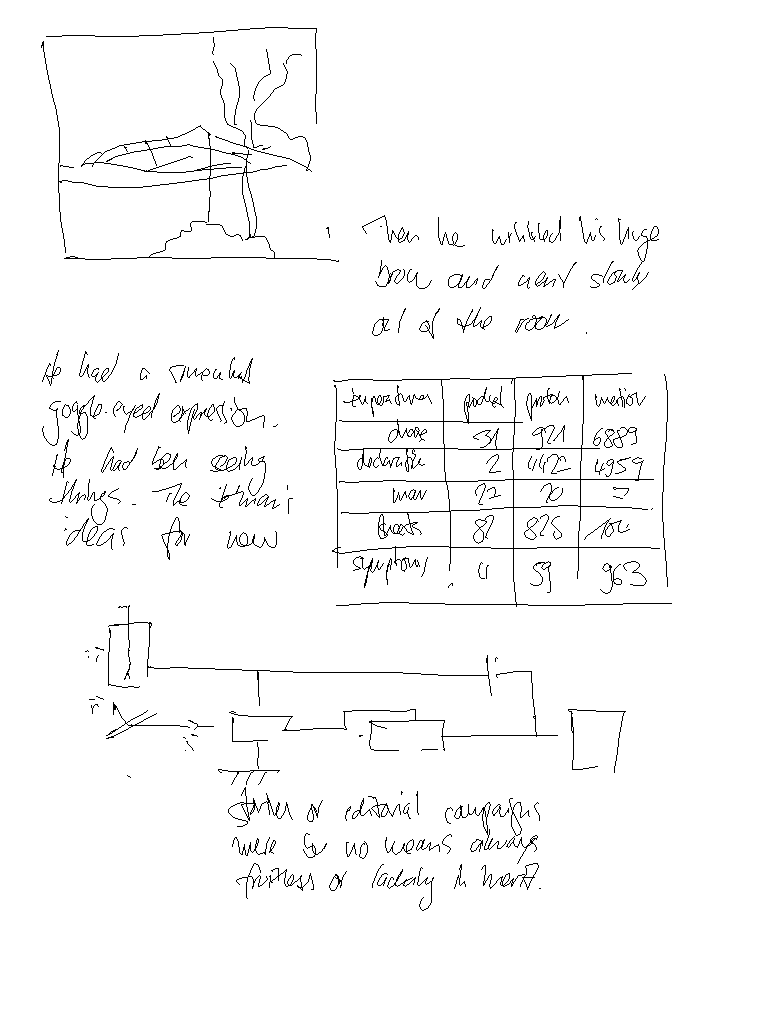 Then he wrinkled his huge
brow and went slowly
out of the room.
He had a
goggle-eyed expression.
He had been seeing
things. The
ideas for now
temperatures product proton mention
31 921 6889
2 4422 4959
man 22 20
82 825 100
symptoms 11 59 963
Stories or editorial campaigns
were by no means always
fruitless or lacking in merit.